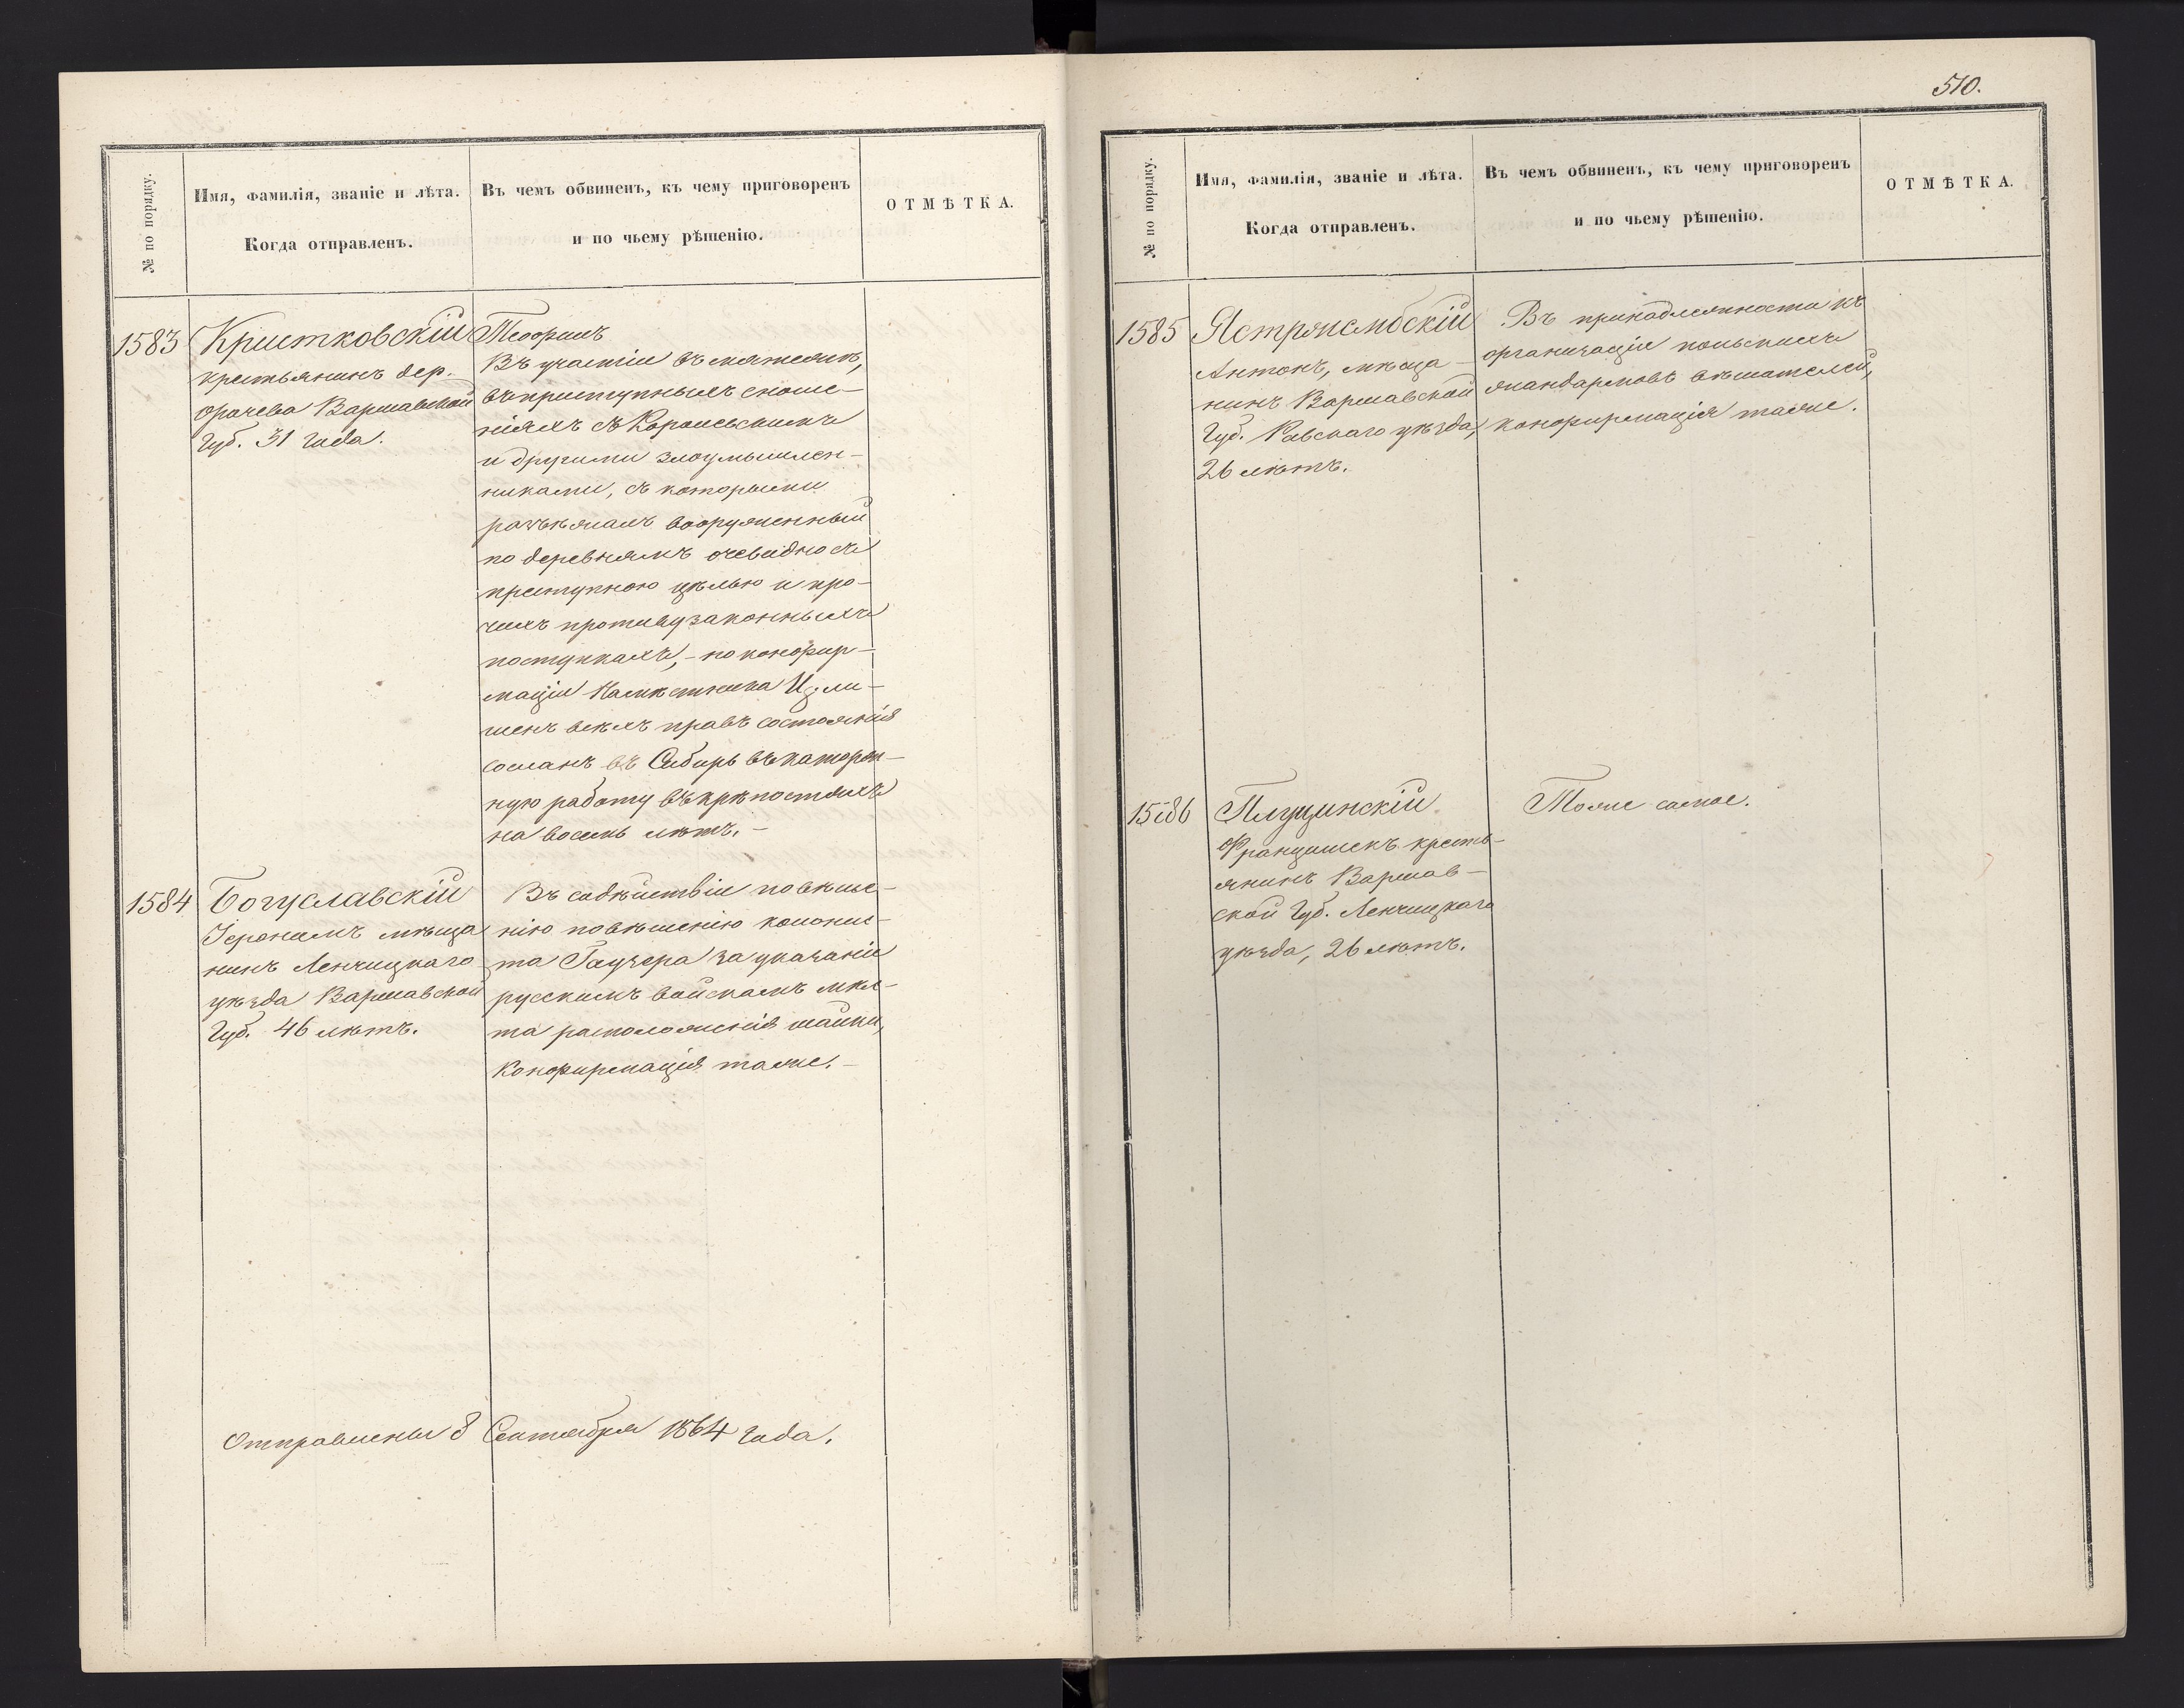 № по порядку.
Имя, фамилія, званіе и лѣта.
Когда отправленъ.
Въ чемъ обвиненъ, къ чему приговоренъ
и по чьему рѣшенію.
ОТМѢТКА.
1583
Кристковскій Теофилъ
крестьянинъ дер.
Орачева Варшавской
Губ. 31 года.
Въ участіи въ мятежѣ,
въ преступныхъ сноше-
ніяхъ съ
и другими злоумышлен-
никами, съ которыми
разъѣзжалъ вооруженный
по деревнямъ очевидно съ
преступною цѣлью и про-
чихъ противузаконныхъ
поступкахъ, - по конфир-
маціи Намѣстника Ц. ли-
шенъ всѣхъ правъ состоянія
сосланъ въ Сибирь въ каторж-
ную работу въ крѣпостяхъ
на восемь лѣтъ. -
1584
Богуславскій
Іеронимъ мѣща
нинъ Ленчицкаго
уѣзда Варшавской
Губ. 46 лѣтъ.
Въ содѣйствіи повѣше-
нію повѣшенію колонис-
та Гаузера за указаніе
русскимъ войскамъ мѣс-
та расположенія шайки,
Конфирмація таже. -
Отправлены 8 Сентября 1864 года.
510.
№ по порядку.
Имя, фамилія, званіе и лѣта.
Когда отправленъ.
Въ чемъ обвиненъ, къ чему приговоренъ
и по чьему рѣшенію.
ОТМѢТКА.
1585
Ястржембскій
Антонъ, мѣща-
нинъ Варшавской
Губ. Равскаго уѣзда,
26 лѣтъ.
Въ принадлежности къ
организаціи польскихъ
жандармовъ вѣшателей,
конфирмація таже.
1586
Плущинскій
Францишекъ кресть-
янинъ Варшав-
ской Губ. Ленчицкаго
уѣзда, 26 лѣтъ.
Тоже самое.